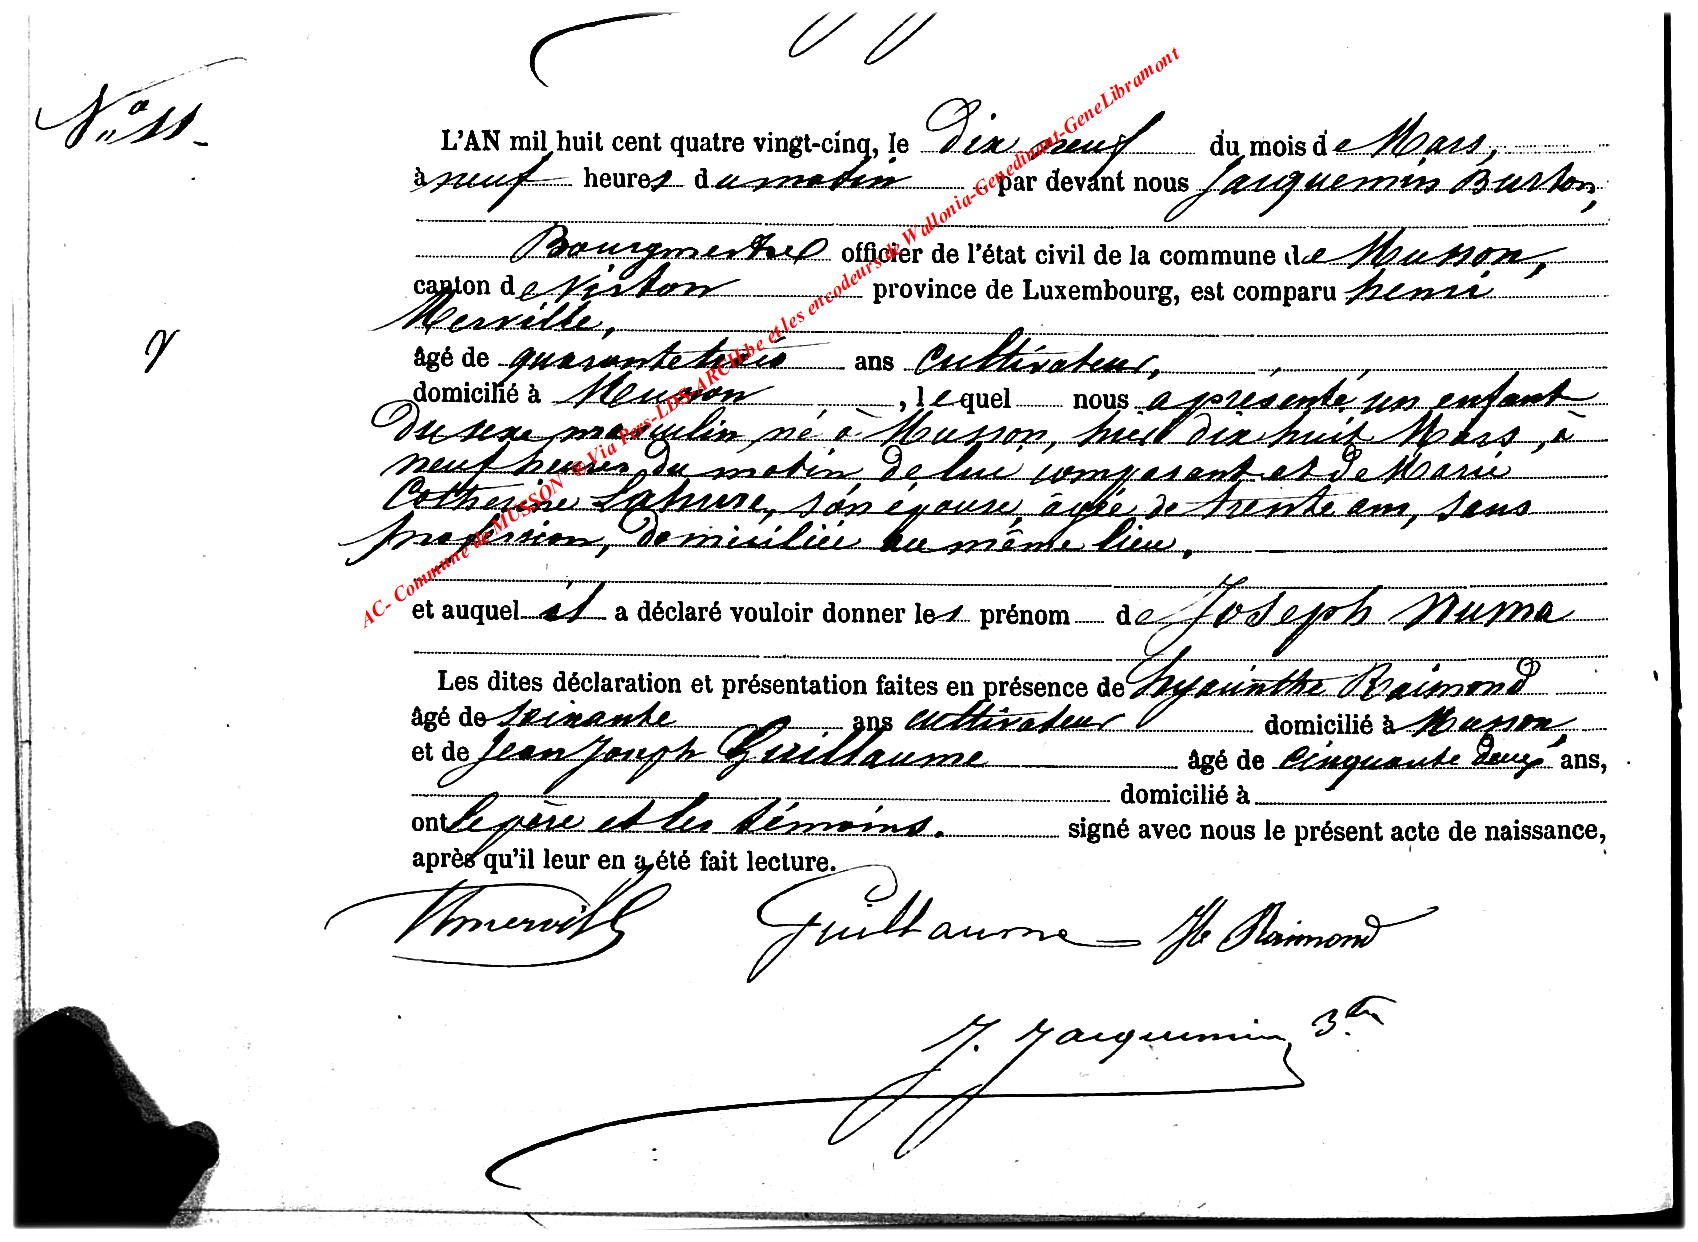 N° 11.
L'AN mil huit cent quatre vingt-cinq, le Dix neuf du mois de Mars,
à neuf heures du matin par devant nous Jacquemin Burton,
Bourgmestre officier de l'état civil de la commune de Musson,
canton de Virton province de Luxembourg, est comparu henri
Merville,
âgé de quarante trois ans Cultivateur,
domicilié à Musson, lequel nous a présenté un enfant
Du sexe masculin né à Musson, hier dix huit Mars, à
neuf heures du matin de lui comparant et de Marie
Catherine Lahure, son épouse, âgée de trente ans, sans
profession, domiciliée au même lieu.
et auquel il a déclaré vouloir donner les prénom de Joseph Numa
Les dites déclaration et présentation faites en présence de hyacinthe Raimond
âgé de soixante ans cultivateur domicilié à Musson,
et de Jean Joseph Guillaume âgé de cinquante deux ans,
domicilié à
ont le père et les témoins. signé avec nous le présent acte de naissance,
après qu'il leur en a été fait lecture.
Hmerville Guillaume Hte Raimond
J. Jacquemin Btn
AC- Commune de MUSSON @ Via Pers-LDS-ARCH.be et les encodeurs de Wallonia-Genedinant-GeneLibramont